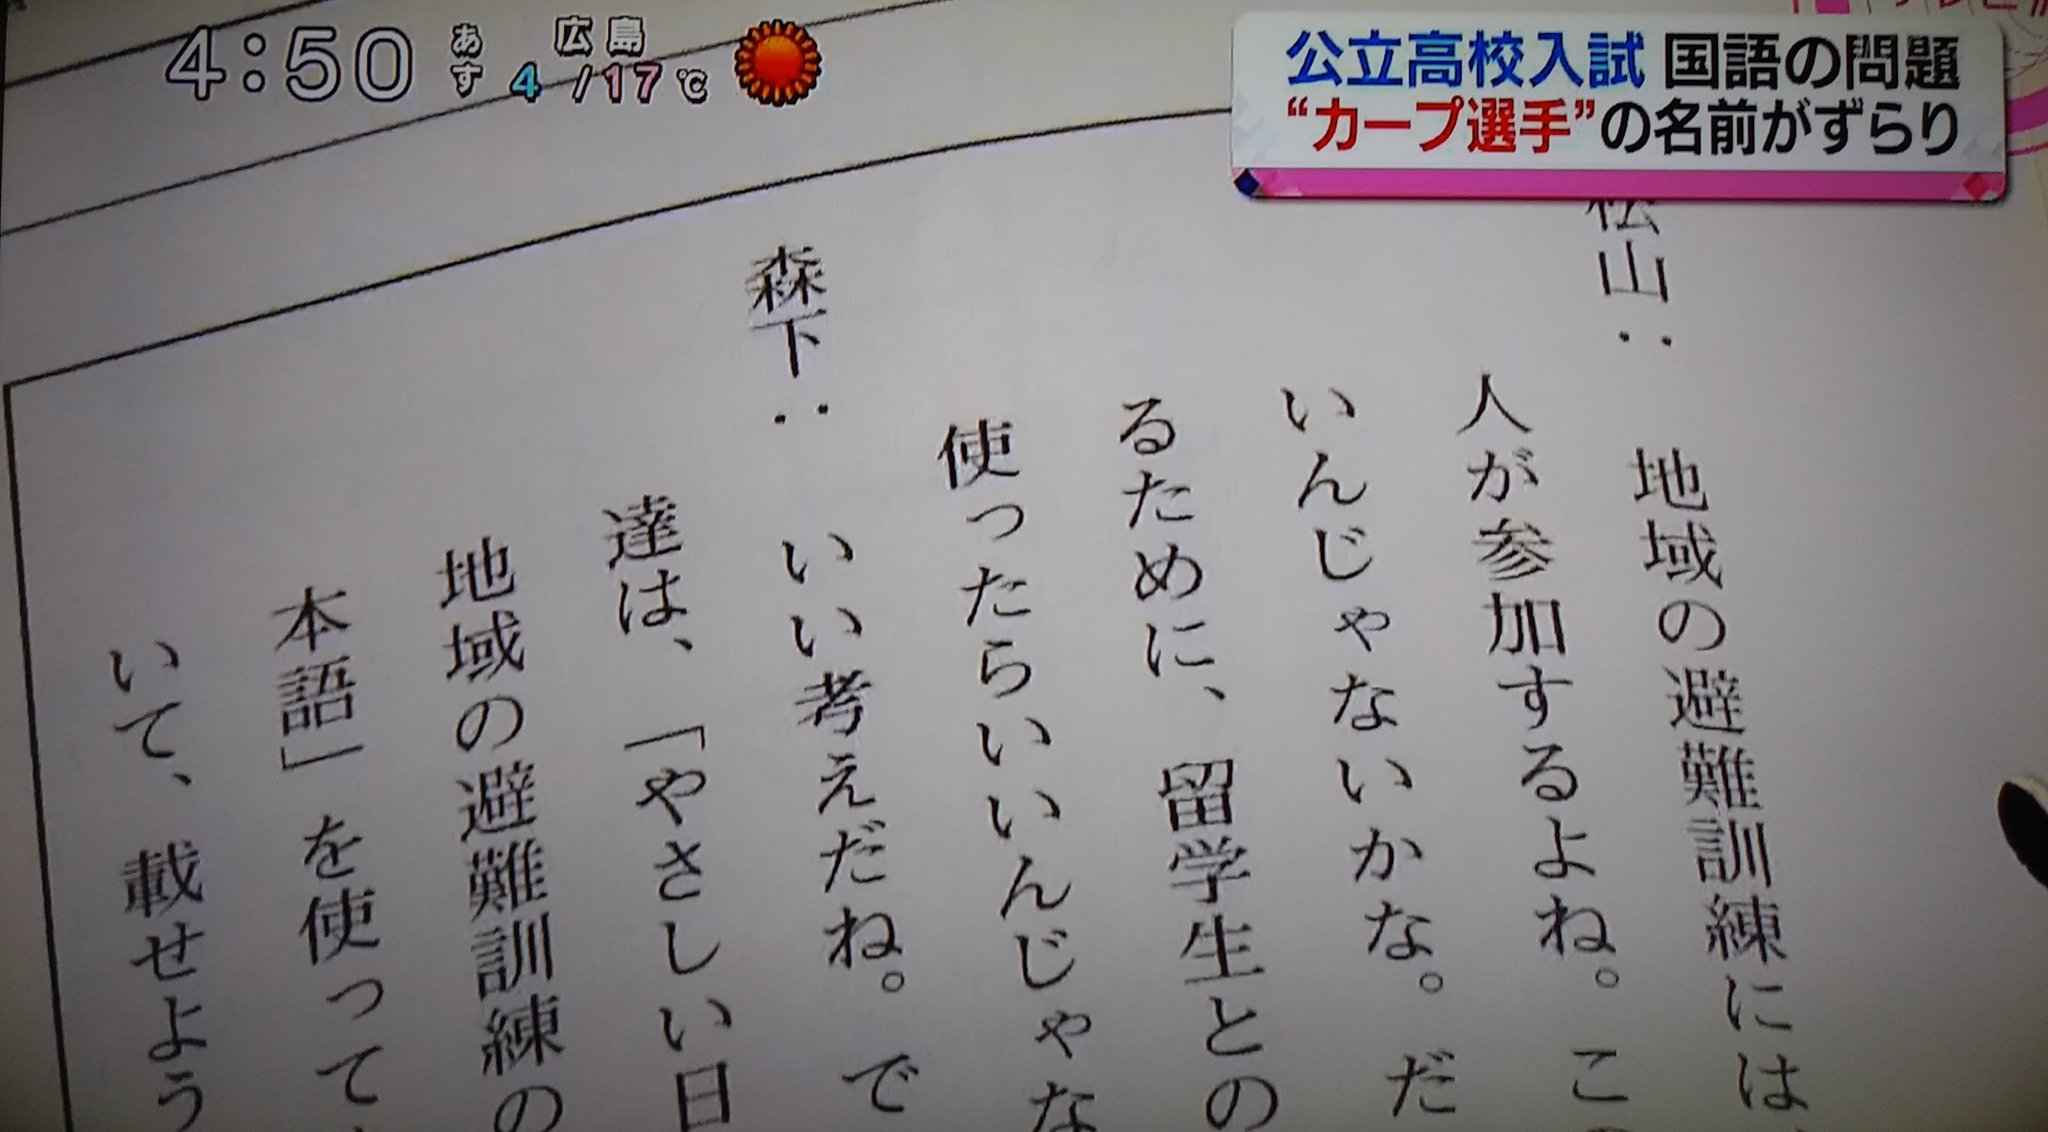 4:50
あす
広島
4/17℃
公立高校入試 国語の問題
“カープ選手”の名前がずらり
松山：
地域の避難訓練には、
人が参加するよね。こ
いんじゃないかな。だ
るために、留学生との
使ったらいいんじゃな
森下：
いい考えだね。で
達は、「やさしい日
地域の避難訓練の
本語」を使って
いて、載せよう